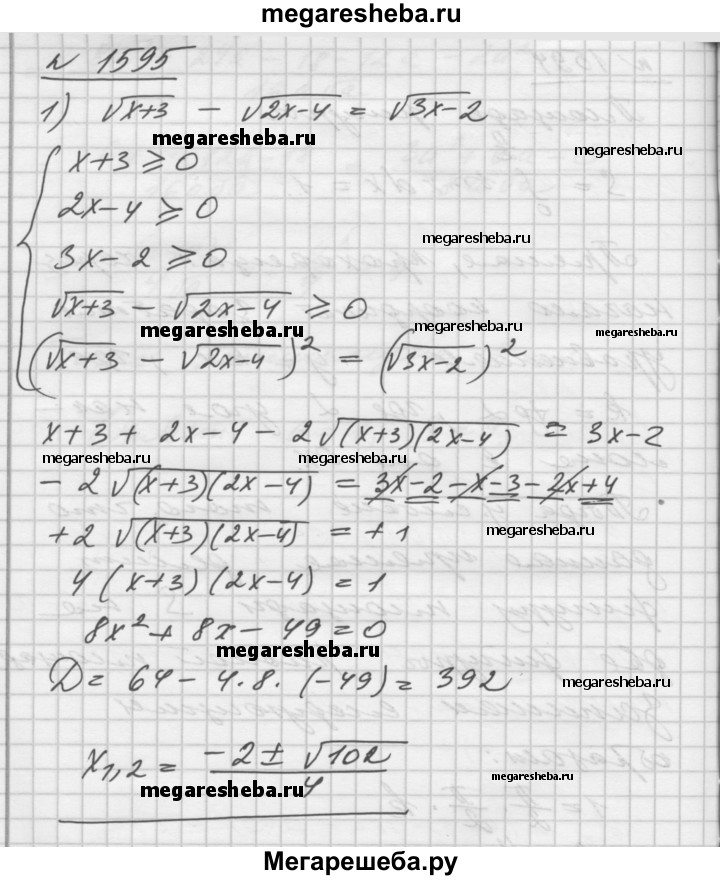 megaresheba.ru
№ 1595
1) √(x+3) − √(2x−4) = √(3x−2)
megaresheba.ru
megaresheba.ru
x+3 ⩾ 0
2x−4 ⩾ 0
megaresheba.ru
3x−2 ⩾ 0
√(x+3) − √(2x−4) ⩾ 0
megaresheba.ru
megaresheba.ru
megaresheba.ru
(√(x+3) − √(2x−4))² = (√(3x−2))²
x+3 + 2x−4 − 2√((x+3)(2x−4)) = 3x−2
megaresheba.ru
megaresheba.ru
− 2√((x+3)(2x−4)) = 3x−2−x−3−2x+4
+2 √((x+3)(2x−4)) = +1
megaresheba.ru
4(x+3)(2x−4) = 1
8x²+8x−49=0
megaresheba.ru
D = 64 − 4·8·(−49) = 392
megaresheba.ru
x₁,₂ = (−2 ± √102)/4
megaresheba.ru
megaresheba.ru
Мегарешеба.ру